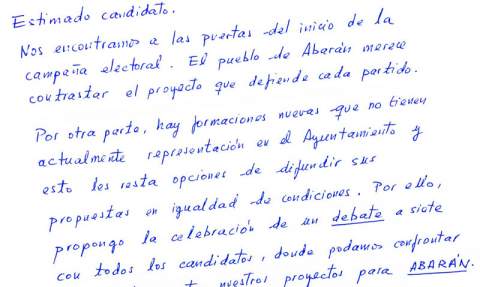 Estimado candidato.
Nos encontramos a las puertas del inicio de la
campaña electoral. El pueblo de Abarán merece
contrastar el proyecto que defiende cada partido.
Por otra parte, hay formaciones nuevas que no tienen
actualmente representación en el Ayuntamiento y
esto les resta opciones de difundir sus
propuestas en igualdad de condiciones. Por ello,
propongo la celebración de un debate a siete
con todos los candidatos, donde podamos confrontar
nuestros proyectos para ABARÁN.